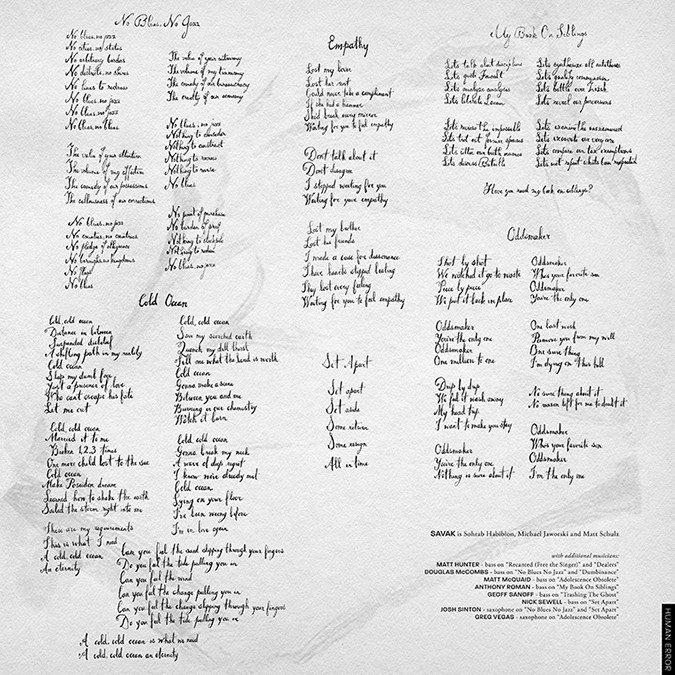 No Blues, No Jazz
No blues, no jazz
No cities, no states
No arbitrary borders
No districts, no shows
No lines to redraw
No blues, no jazz
No blues, no jazz
No blues, no blues
The value of your attention
The volume of my affection
The comedy of our possessions
The callousness of our corrections
No blues, no jazz
No countries, no
No pledge of allegiance
No kingdoms
No flags
No blues
The value of your autonomy
The volume of my
The comedy of our bureaucracy
The cruelty of our economy
No blues, no jazz
Nothing to consider
Nothing to construct
Nothing to
Nothing to
No blues
No point of purchase
No burden of proof
Nothing to
Nothing to redeem
No blues, no jazz
Cold Ocean
Cold, cold ocean
Distance in between
Suspended disbelief
A shifting path in my reality
Cold ocean
Slap my dumb face
Just a prisoner of love
Who can't escape his fate
Let me out
Cold, cold ocean
Married it to me
Broken 1, 2, 3 times
One more child lost to the sea
Cold ocean
Make Poseidon dream
Learned how to shake the earth
Sailed the storm right into me
These are my requirements
This is what I need
A cold, cold ocean
An eternity
Cold, cold ocean
Saw my scorched earth
Quench my thirst
Tell me what the sand is worth
Cold ocean
Gonna make a scene
Between you and me
Burning in our chemistry
Watch it burn
Cold, cold ocean
Gonna break my neck
A wave of deep regret
I know we've already met
Cold ocean
Lying on your floor
I've been wrong before
I'm in love again
Can you feel the sand slipping through your fingers
Do you feel the tide pulling you in
Can you feel the wind
Can you feel the change pulling you in
Can you feel the change slipping through your fingers
Do you feel the tide pulling you in
A cold, cold ocean is what we need
A cold, cold ocean an eternity
Empathy
Lost my lover
Lost her scent
Could never take a compliment
If she had a hammer
She'd break every mirror
Waiting for you to feel empathy
Don't talk about it
Don't disagree
I stopped waiting for you
Waiting for your empathy
Lost my brother
Lost his friends
I made a case for dissonance
I have hearts stopped beating
They lost every feeling
Waiting for you to feel empathy
Set Apart
Set apart
Set aside
Some return
Some resign
All in time
My Book On Siblings
Let's talk about disciplines
Let's quote Foucault
Let's analyze analysis
Let's liberate Lacan
Let's the impossible
Let's former spouses
Let's both names
Let's discuss Bataille
Let's synthesize all antitheses
Let's qualify comparison
Let's battle over Zizek
Let's reveal our personas
Let's examine the unexamined
Let's excavate our very core
Let's compare our tax exemptions
Let's not repeat what's been neglected
Have you read my book on siblings?
Oddsmaker
Shot by shot
We watched it go to waste
Piece by piece
We put it back in place
Oddsmaker
You're the only one
Oddsmaker
One million to one
Drip by drip
We let it wash away
My head trip
I want to make you stay
Oddsmaker
You're the only one
Nothing is sure about it
Oddsmaker
Who's your favorite son
Oddsmaker
You're the only one
One last wish
Remove you from my will
One sure thing
I'm dying on this hill
No sure thing about it
No reason left for me to doubt it
Oddsmaker
Who's your favorite son
Oddsmaker
I'm the only one
SAVAK is Sohrab Habibion, Michael Jaworski and Matt Schulz
with additional musicians:
MATT HUNTER - bass on "Recanted (Free the Singer)" and "Dealers"
DOUGLAS McCOMBS - bass on "No Blues No Jazz" and "Dumbinance"
MATT McQUAID - bass on "Adolescence Obsolete"
ANTHONY ROMAN - bass on "My Book On Siblings"
GEOFF SANOFF - bass on "Trashing The Ghost"
NICK SEWELL - bass on "Set Apart"
JOSH SINTON - saxophone on "No Blues No Jazz" and "Set Apart"
GREG VEGAS - saxophone on "Adolescence Obsolete"
HUMAN ERROR